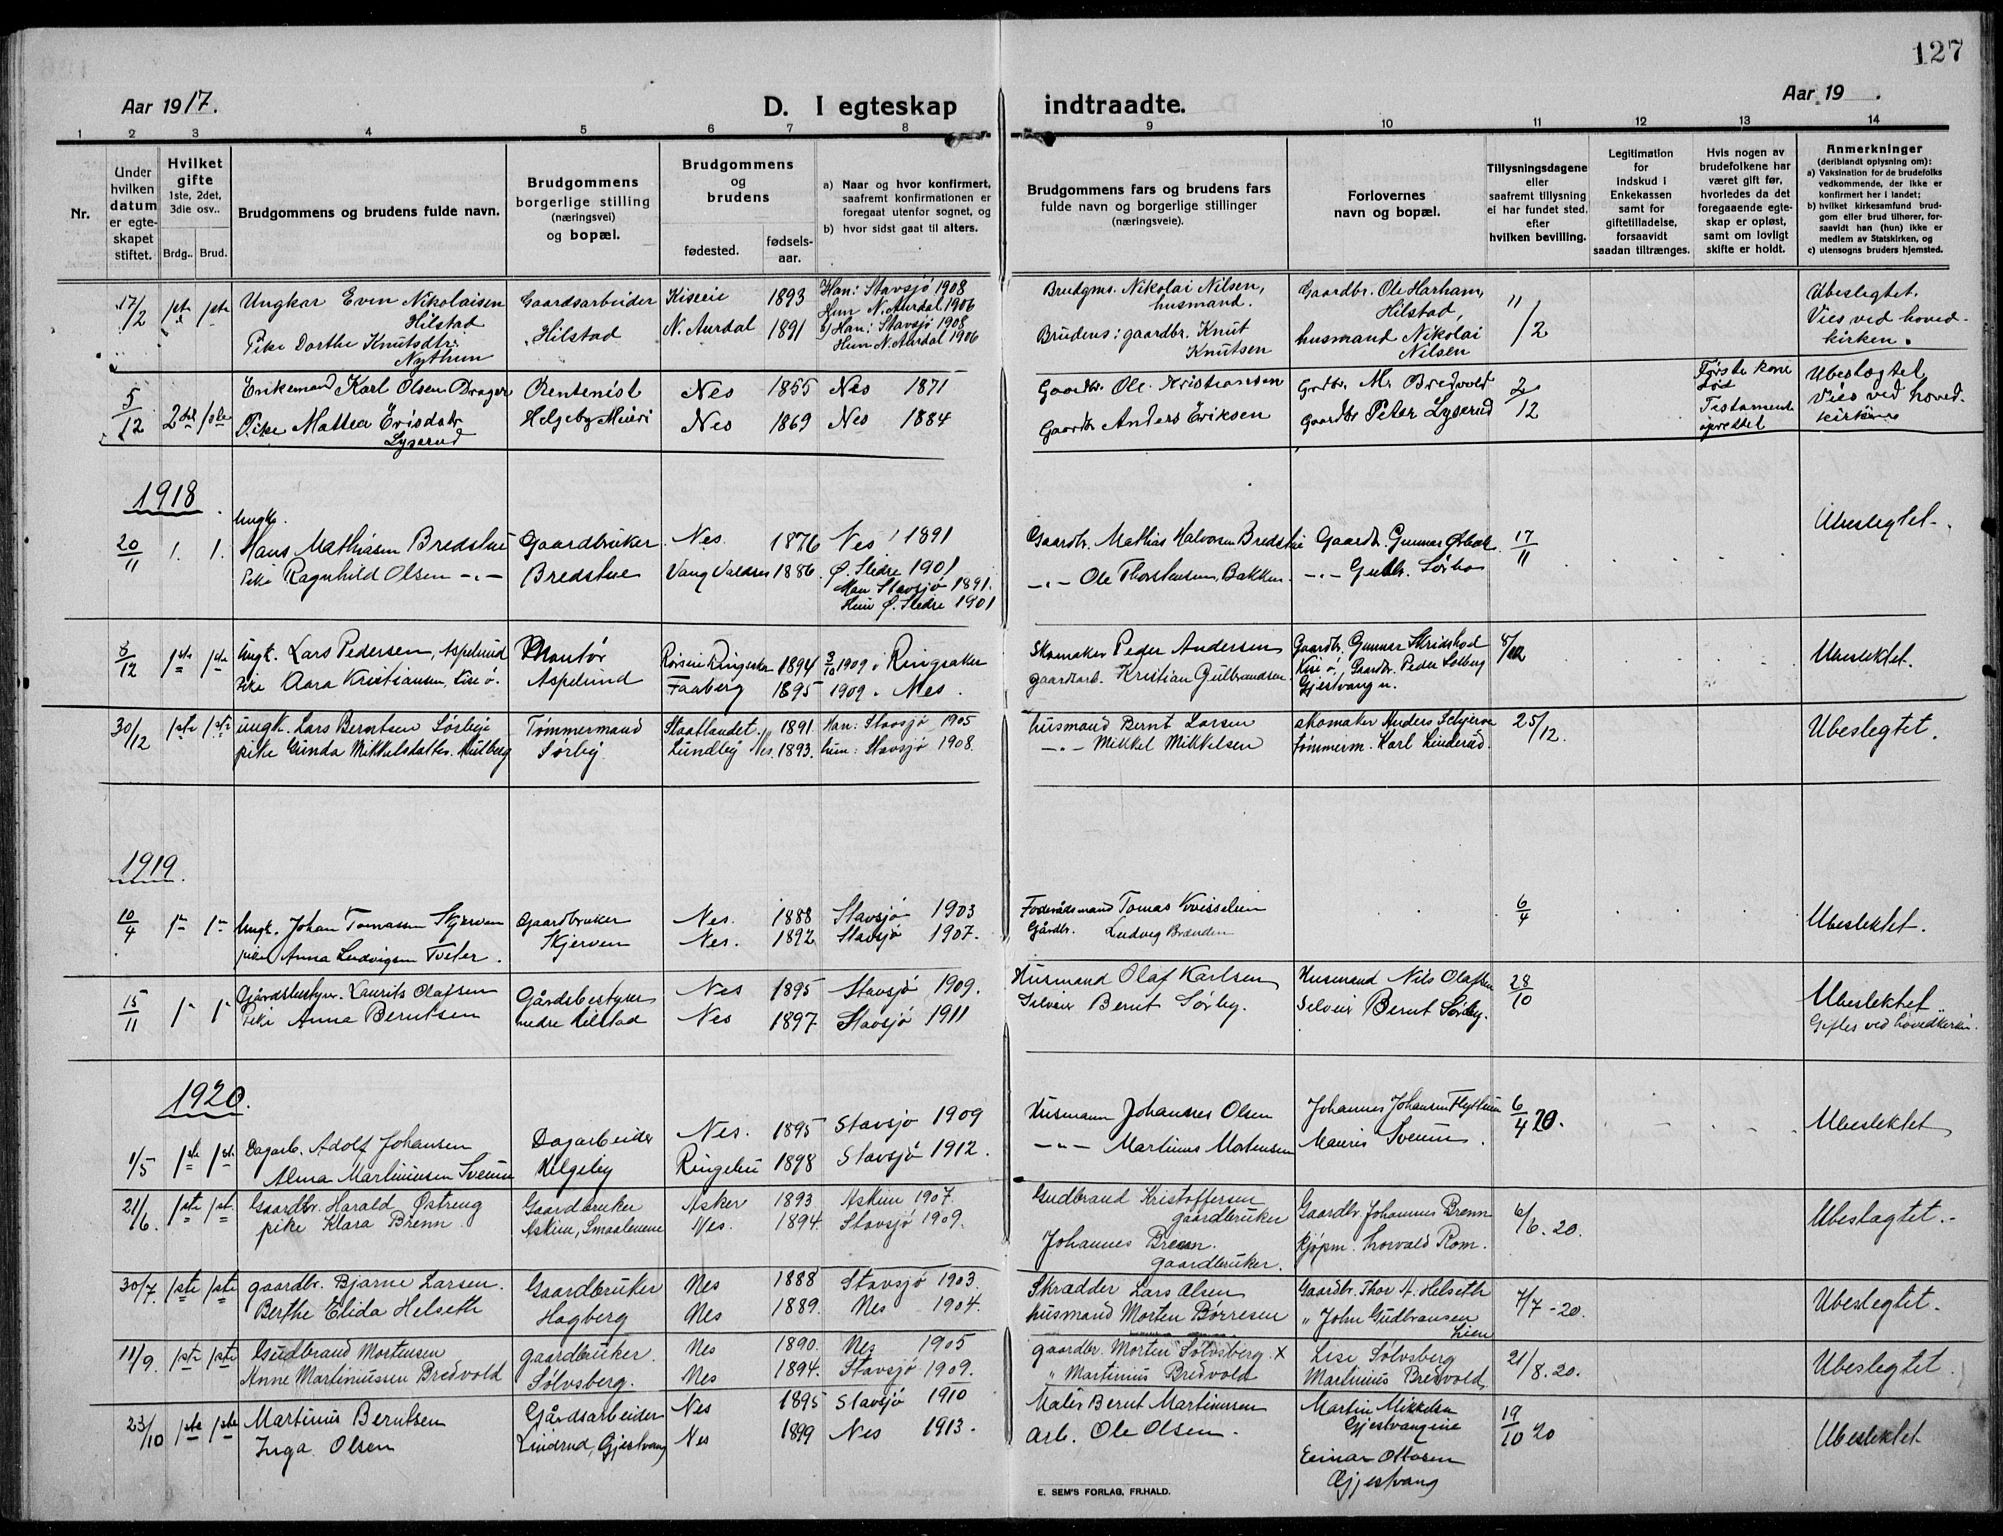 127
Aar 1917.
D. I egteskap indtraadte.
Aar 19 .
1 2 3 4 5 6 7 8 9 10 11 12 13 14
Nr.
Under hvilken datum er egteskapet stiftet.
Hvilket gifte 1ste, 2det, 3die osv..
Brdg.. Brud.
Brudgommens og brudens fulde navn.
Brudgommens borgerlige stilling (næringsvei) og bopæl.
Brudgommens og brudens
fødested.
fødsels-aar.
a) Naar og hvor konfirmert, saafremt konfirmationen er foregaat utenfor sognet, og
b) hvor sidst gaat til alters.
Brudgommens fars og brudens fars fulde navn og borgerlige stillinger (næringsveie).
Forlovernes navn og bopæl.
Tillysningsdagene eller saafremt tillysning ei har fundet sted, efter hvilken bevilling.
Legitimation for indskud i Enkekassen samt for giftetilladelse, forsaavidt saadan tiltrænges.
Hvis nogen av brudefolkene har været gift før, hvorledes da det foregaaende egteskap er opløst, samt om lovligt skifte er holdt.
Anmerkninger (deriblandt oplysning om):
a) Vaksination for de brudefolks vedkommende, der ikke er konfirmert her i landet;
b) hvilket kirkesamfund brudgom eller brud tilhører, forsaavidt han (hun) ikke er medlem av Statskirken, og
c) utensogns bruders hjemsted.
17/2 1ste 1ste Ungkar Even Nikolaisen Hilstad Gaardsarbeider Hilstad 1893 Han: Stavsjø 1908 Hun N. Aurdal 1906 Brudgms. Nikolai Nilsen, husmand. Gaardbr. Ole Harham, Hilstad, 11/2 Ubeslegtet. Vies ved hovedkirken.
Pike Dorthe Knutsdtr. Nythun N. Aurdal 1891 b) Han: Stavsjø 1908 Hun N. Aurdal 1906 Brudens: gaardbr. Knut Knutsen husmand Nikolai Nilsen
5/12 2det 1ste Enkemand Karl Olsen Drager Rentenist Nes 1855 Nes 1871 Gaardbr. Ole Kristiansen Grdbr. M. Bredvold 2/12 Første kone død Testament oprettet Ubeslægtet Vies ved hovedkirken
Pike Mattea Lygerud Helgeby Nes 1869 Nes 1884 Gaardbr Anders Eriksen Gaardbr Peter Lygerud
1918
20/11 1. 1. Ungk. Hans Mathiasen Bredstue Gaardbruker Nes. 1876 Nes 1891 Gaardbr. Mathias Halvorsen Bredstue Gaardbr. Gunnar 17/11 Ubeslegtet.
Pike Ragnhild Olsen -"- Bredstue Vang Valdres 1886. Ø. Slidre 1901 -"- Ole Thorstensen, Bakken. -"- Sørbo
Han Stavsjø 1891. Hun Ø. Slidre 1901
8/12 1ste 1ste Ungk. Lars Pedersen, Aspelund Aspelund 1894 3/10 1909 Ringsaker Skomaker Peder Andersen Gaardbr. Gunnar 8/12 Ubeslektet.
Pike Kristiansen, Kise ø. Faaberg 1895 1909. Nes. gaardarb. Kristian Gulbrandsen Kise ø, Gaardbr. Peder Solberg Gjestvang n.
30/12 1ste 1ste ungk. Lars Berntsen Sørbye Tømmermand 1891. Han: Stavsjø 1905 husmand Bernt Larsen skomaker Anders 25/12. Ubeslegtet.
pike Gunda Mikkelsdatter Sørby. Lundby Nes. 1893. hun: Stavsjø 1908. -"- Mikkel Mikkelsen tømmerm. Karl Linderud.
1919.
10/4 1ste 1ste Ungk. Johan Tomassen Skjerven Gaardbruker Nes. 1888 Stavsjø 1903 Foderådsmand Tomas 6/4 Ubeslektet.
pike Anna Ludvigsen Tveter. Skjerven Nes. 1892 Stavsjø 1907. Gårdbr. Ludvig Brænden
15/11 1ste 1ste Gårdsbestyrer. Laurits Olafsen Gårdsbestyrer Nes 1895 Stavsjø 1909. Husmand Olaf Karlsen Husmand Nils Olafsen 28/10 Ubeslektet Giftes ved hovedkirken.
Pike Anna Berntsen nedre Hilstad Nes 1897. Stavsjø 1911 Selveier Bernt Sørby. Selveier Bernt Sørby.
1920.
1/5 1ste 1ste Dagarb. Adolf Johansen Dagarbeider Nes. 1895 Stavsjø 1909 Husmann Johannes Olsen Johannes Johansen 6/4 20. Ubeslektet
Alma Martiniusen Sveum Helgeby Ringebu 1898 Stavsjø 1912. -"- Martinus Mortensen Sveum.
21/6. 1ste 1ste Gaardbr. Harald Østreng Gaardbruker Asker 1893 Askim 1907. Gudbrand Kristoffersen gaardbruker Gaardbr. Johannes Brenn 6/6. 20. Ubeslægtet.
pike Klara Brenn. Askim, Smaalenene Nes. 1894. Stavsjø 1909. Johannes Brenn. gaardbruker. Kjøpm. Thorvald Rom.
30/7. 1ste 1ste gaardbr. Bjarne Larsen. Gaardbruker Nes 1888 Stavsjø 1903. Skrædder Lars Olsen Gaardbr. Thor A. Helseth 7/7-20. Ubeslegtet.
Berthe Elida Helseth Hagberg Nes 1889. Nes 1904. husmand Morten Børresen " John Gudbransen Lien
11/9. 1ste 1ste Gudbrand Mortensen gaardbruker. Nes 1890. Nes 1905 gaardbr. Morten Sølvsberg. x Lise Sølvsberg 21/8. 20. Ubeslegtet.
Anne Martiniussen Bredvold Sølvsberg. Nes 1894. Stavsjø 1909. " Martinius Bredvold Martinius Bredvold
23/10 1ste 1ste Martinus Berntsen Gårdsarbeider Nes 1895 Stavsjø 1910 Maler Bernt Martinussen Martin Mikkelsen Gjestvang 19/10 20 Ubeslektet
Inga Olsen Lindrud, Gjestvang Nes 1899 Nes 1913. Arb. Ole Olsen. Einar Ottosen Gjestvang
E. SEM'S FORLAG, FR.HALD.